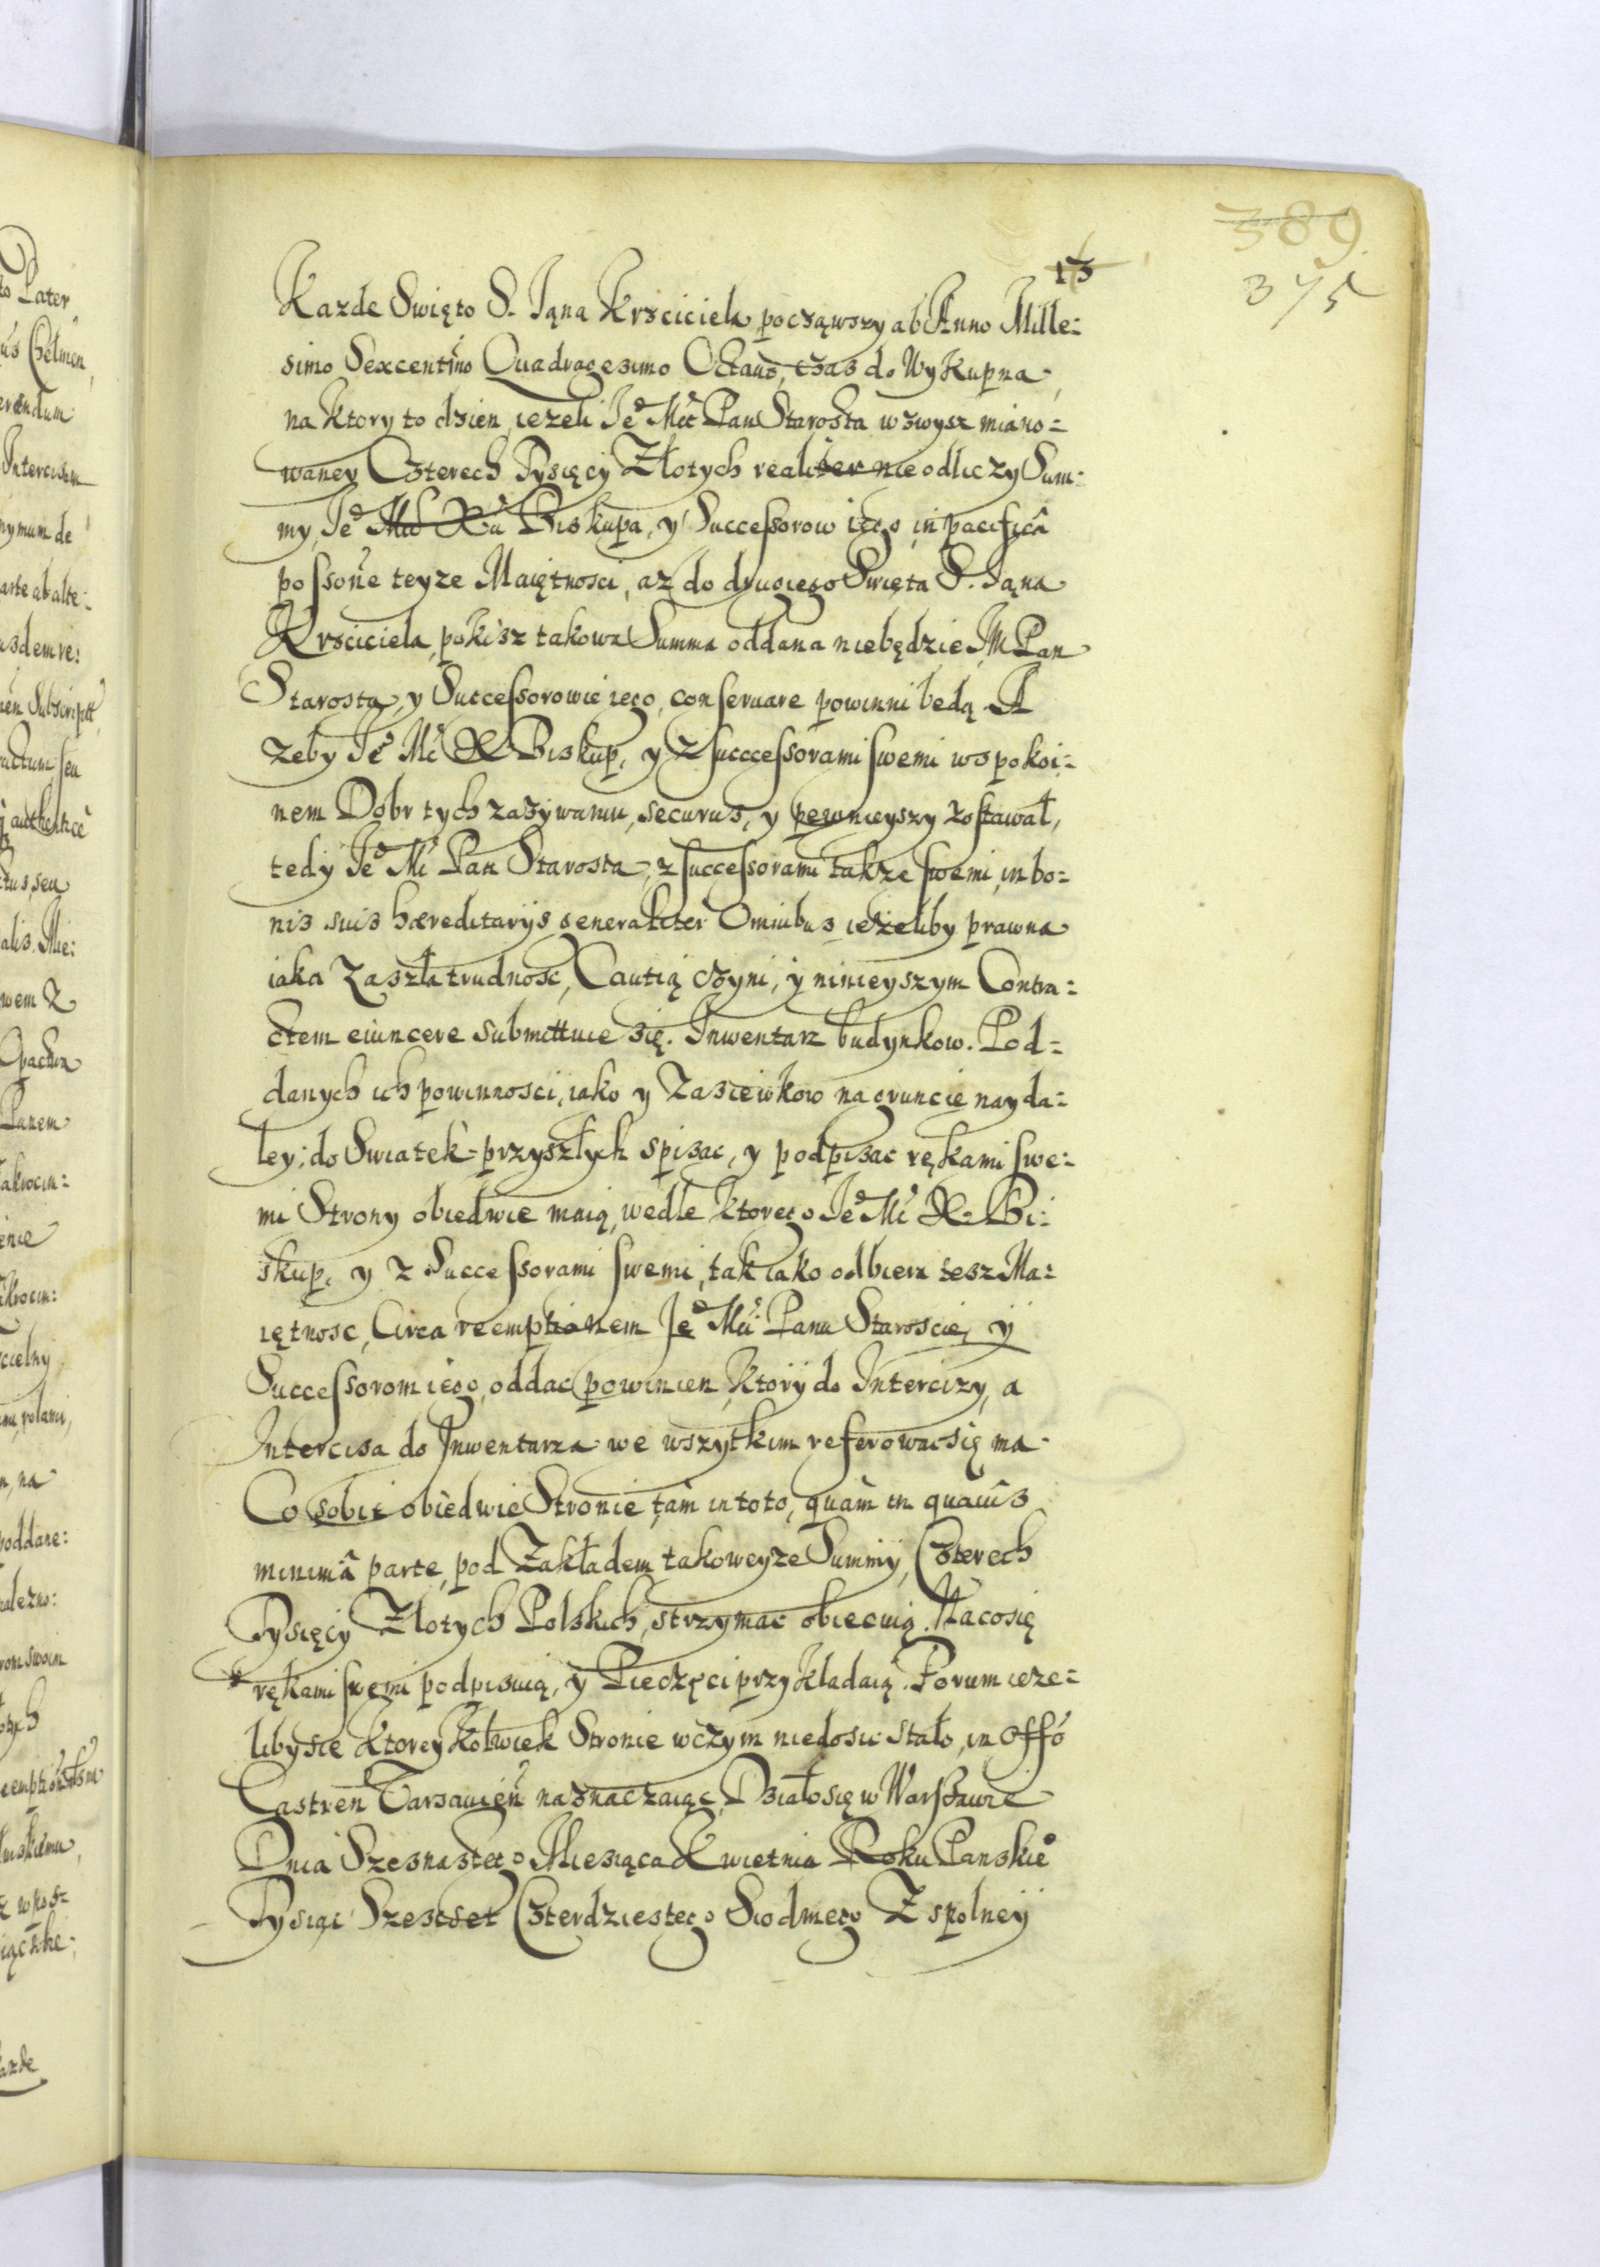 389
375
13
Kazde Swięto S. Jąna Krsciciela począwszy ab Anno Mille=
simo Sexcentmo Quadragesimo Octauo, czas do Wykupna,
na ktory to dzien, iezeli Je° Mć Pan Starosta wzwysz miano=
waney Czterech Tysięcy Złotych realiter nie odliczy Sum=
my, Je° Mći Xa Biskupa, y Successorow iego, in pacifica
possone teyze Maiętnosci, az do drugiego Swięta S. Jąna
Krsciciela, pokisz takowa Summa oddana niebędzie, JM Pan
Starosta, y Successorowie iego, conseruare powinni bedą. A
zeby Je° Mć X Biskup, y z succcessorami swemi w spokoi=
nem Dobr tych zazywaniu, securus, y pewnieyszy zostawał,
tedy Je° Mć Pan Starosta, z successorami takze swemi, in bo=
nis suis hæreditarijs generaliter Omnibus iezeliby prawna
iaka zaszła trudnosc, Cautią czyni, y ninieyszym Contra=
ctem euincere submittuie się. Inwentarz budynkow. Pod=
danych ich powinnosci, iako y Zasiewkow na gruncie nayda=
ley: do Swiątek przyszłych spisac, y podpisac rękami swe=
mi Strony obiedwie maią, wedle ktorego Je° Mć X. Bi=
skup, y z Successorami swemi, tak iako odbierz tesz Ma=
iętnosc, Circa reemptionem Je° Mći Panu Staroscie, y
Successorom iego, oddac powinien, ktory do Intercizy, a
Intercisa do Inwentarza we wszytkim referowac się ma.
Co sobie obiedwie Stronie tàm in toto, quàm in quauis
minimâ parte, pod Zakładem takoweyze Summy, Czterech
Tysięcy Złotych Polskich, strzymac obiecuią. Na co się
rękami swemi podpisuią, y Pieczęci przykładaią. Forum ieze=
liby sie ktorey kolwiek Stronie w czym niedosic stało, in Offo
Castren Varsauien naznaczaiąc, Działo się w Warszawie
Dnia Szesnastego Miesiąca Kwietnia Roku Panskie°
Tysiąc Szescset Czterdziestego Siodmego Z spolney